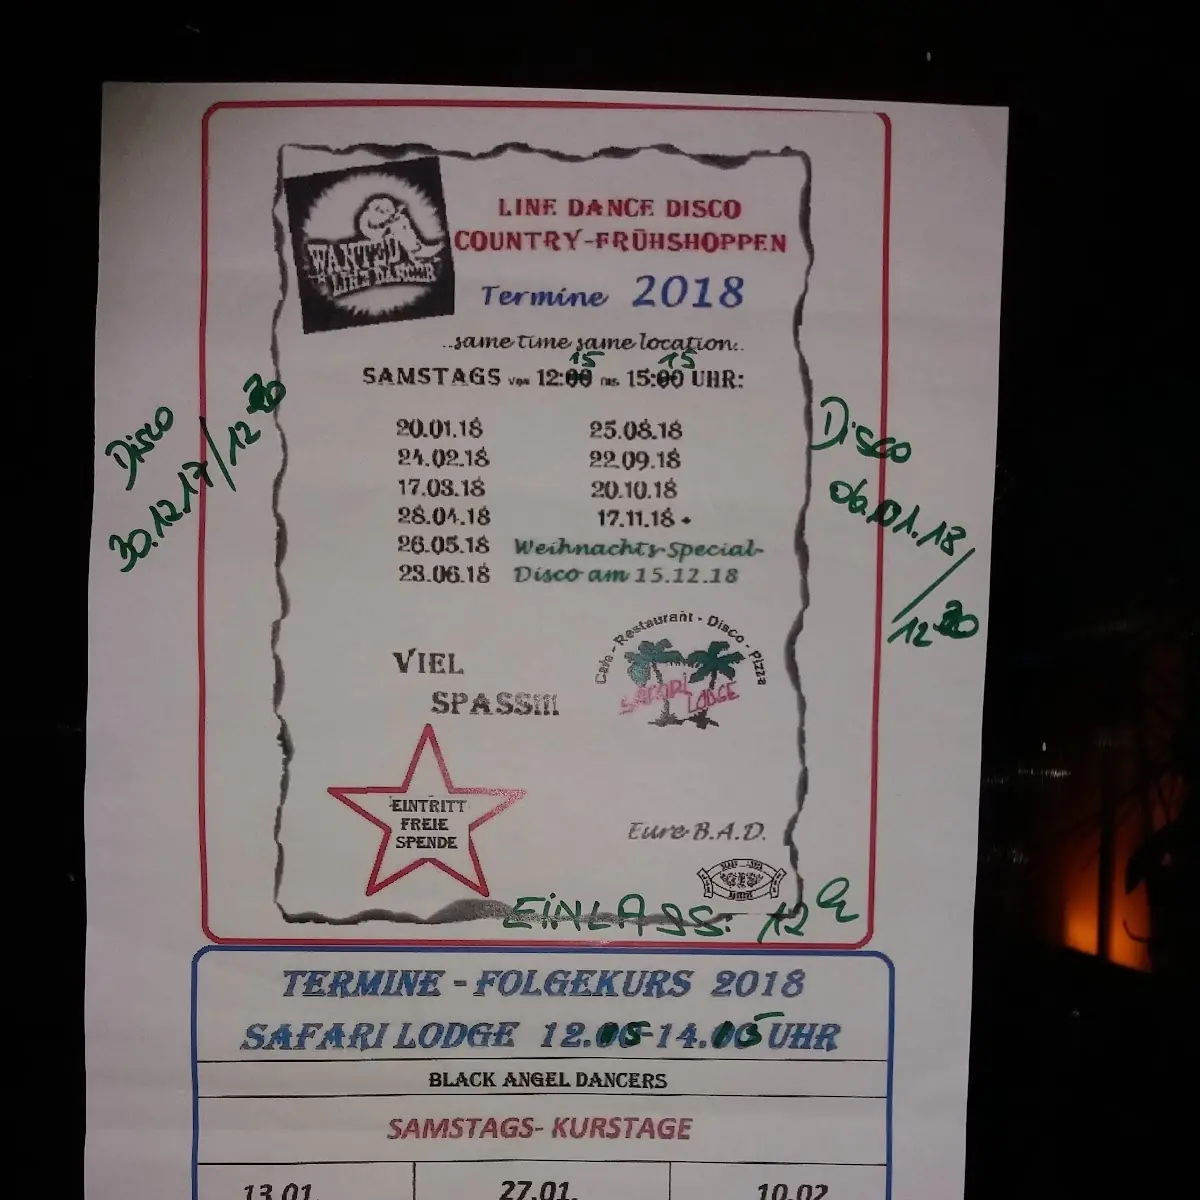 WANTED
LINE DANCER
LINE DANCE DISCO
COUNTRY-FRÜHSHOPPEN
Termine 2018
..same time same location..
15 15
SAMSTAGS von 12:00 bis 15:00 UHR:
20.01.18 25.08.18
24.02.18 22.09.18
17.03.18 20.10.18
28.04.18 17.11.18 •
26.05.18 Weihnachts-Special-
23.06.18 Disco am 15.12.18
Disco
30.12.17/12
Disco
06.01.18/
12
VIEL
SPASS!!!
Cafe - Restaurant - Disco - Pizza
SAFARI LODGE
EINTRITT
FREIE
SPENDE
Eure B.A.D.
EINLASS: 12
TERMINE - FOLGEKURS 2018
SAFARI LODGE 12.05-14.05 UHR
BLACK ANGEL DANCERS
SAMSTAGS- KURSTAGE
13.01. 27.01. 10.02